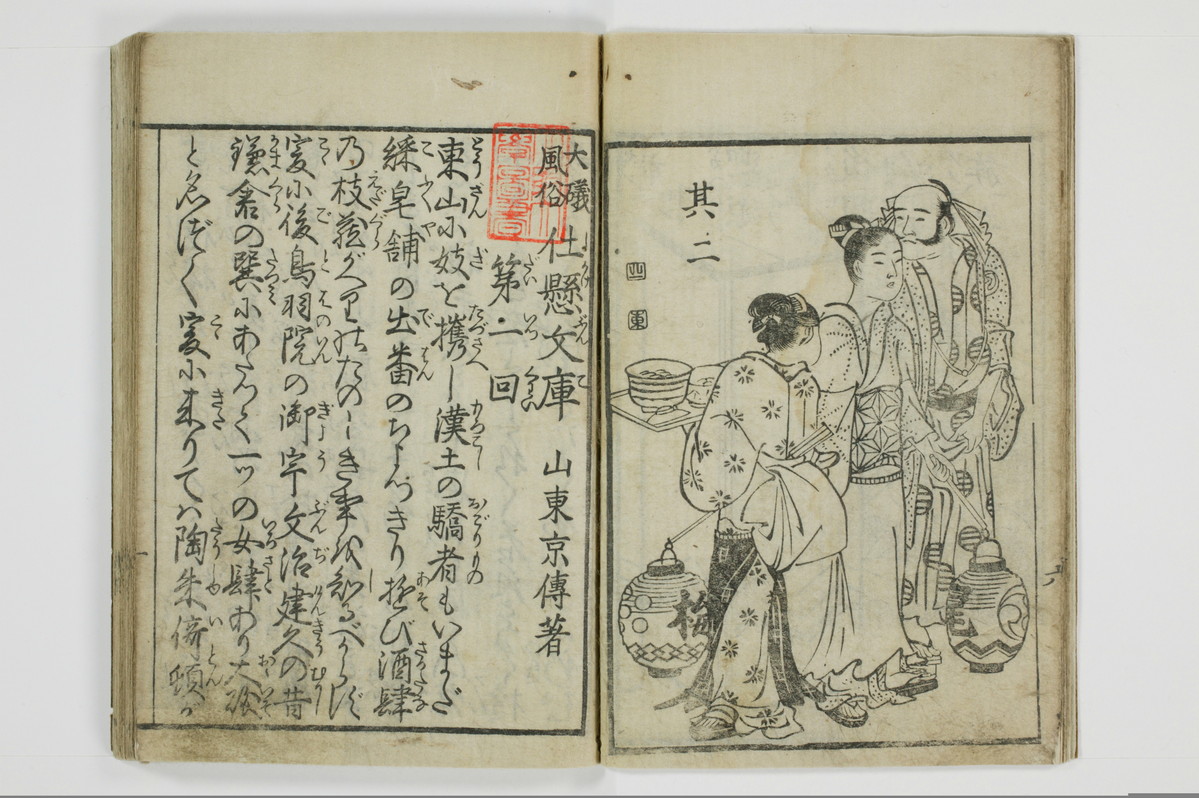 其二
山東
梅
大礒風俗 仕懸文庫 山東京傳著
第一回
東山に妓を攜し漢土の驕者もいまだ
綵皂舗の出番のちよつきり遊び酒肆
乃枝蔵がへりのたのしき事を知るべからず
爰に後鳥羽院の御宇文治建久の昔
鎌倉の巽にあたつて一ツの女肆あり大礒
と名づく爰に来りては陶朱倚頓が